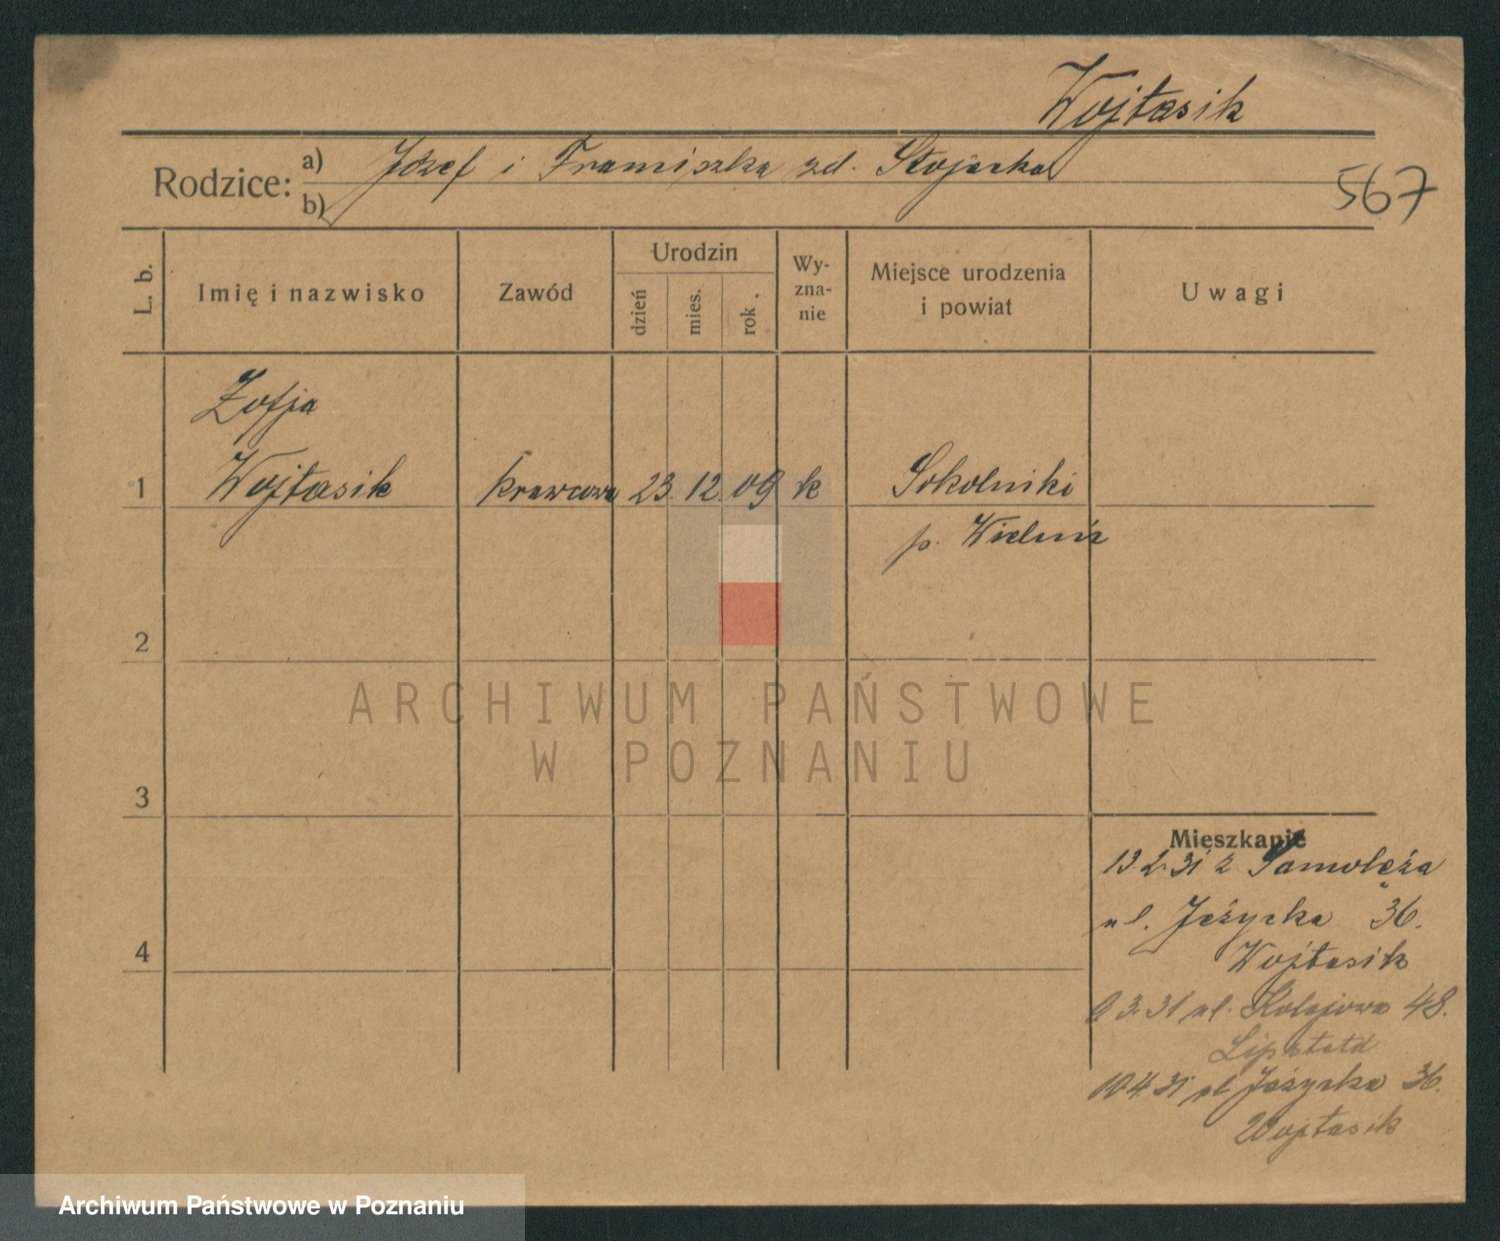 Wojtasik
Rodzice: a) Józef i Franciszka zd. Stojecka
b)
567
L. b.
Imię i nazwisko
Zawód
Urodzin
dzień
mies.
rok
Wy-
zna-
nie
Miejsce urodzenia
i powiat
Uwagi
Zofja
1 Wojtasik krawcowa 23. 12. 09 k Sokolniki
p. Wieluń
2
3
4
Mieszkanie
13.2.31 z Samołęża
ul. Jeżycka 36.
Wojtasik
3.31 ul. Kolejowa 48.
Lipstatd
10.4.31 ul Jeżycka 36.
Wojtasik
ARCHIWUM PAŃSTWOWE
W POZNANIU
Archiwum Państwowe w Poznaniu